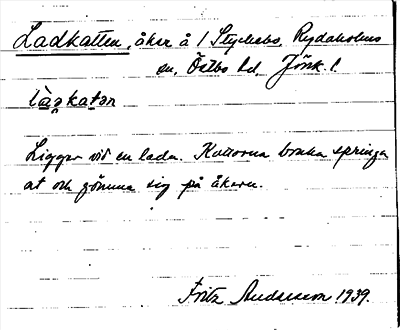 Ladkatten, åker å 1 Styckebo, Rydaholms
sn, Östbo hd, Jönk. l.
lạgkatən
Ligger vid en lada. Kattorna bruka springa
at och gömma sig på åkern.
Fritz Andersson 1939.